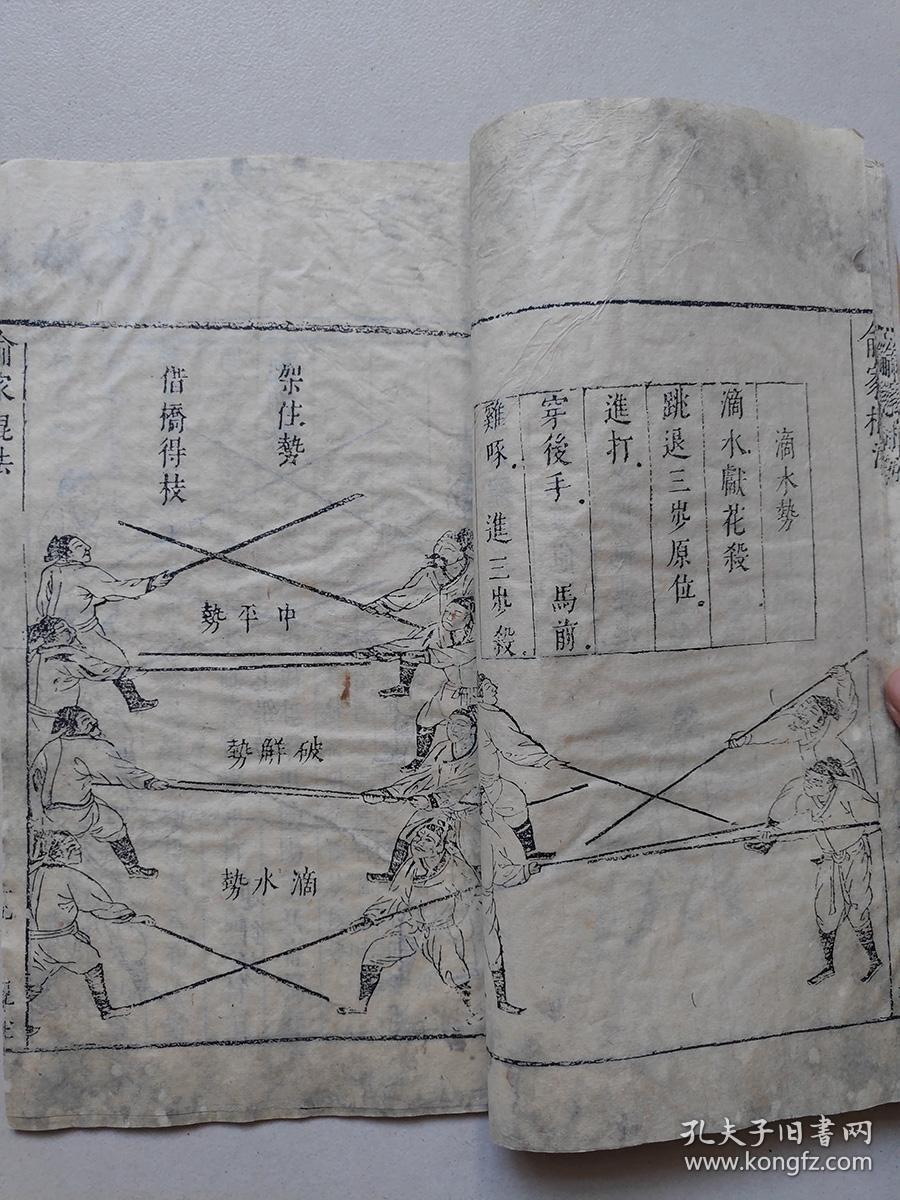 滴水勢
滴水獻花殺
跳退三步原位。
進打。
穿後手。 馬前。
雞啄。 進三步殺。
俞家棍法
架住勢
借橋得枝
中平勢
破解勢
滴水勢
俞家棍法
孔夫子旧書网
www.kongfz.com